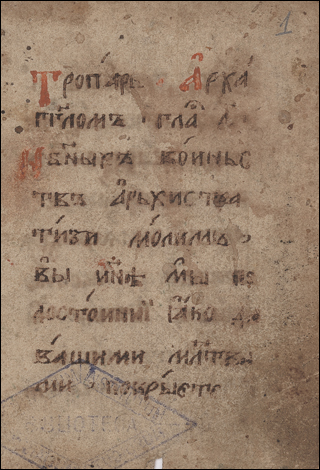 1
Тропарь Арха
гг҃ломъ гла д҃
Нб҃ныхъ воиньс
твъ архистра
тизи молимъ
вы нн҃ѣ мы не
достоинии ꙗко да
вашими мл҃твы
ми покрыете